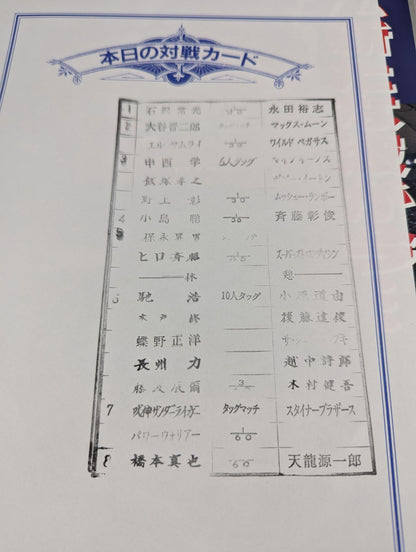 本日の対戦カード
1 石沢常光 永田裕志
2 大谷晋二郎 タッグマッチ マックス・ムーン
エル・サムライ ワイルド ペガサス
3 中西 学 6人タッグ
飯塚孝之
野上 彰
4 小島 聡 斉藤彰俊
5 保永昇男
ヒロ斉藤
休 憩
馳 浩 10人タッグ 小原道由
木戸 修 後藤達俊
蝶野正洋
長州 力 越中詩郎
藤波辰爾 木村健吾
7 獣神サンダーライガー タッグマッチ スタイナーブラザース
パワーウォリアー 1/60
8 橋本真也 /60 天龍源一郎